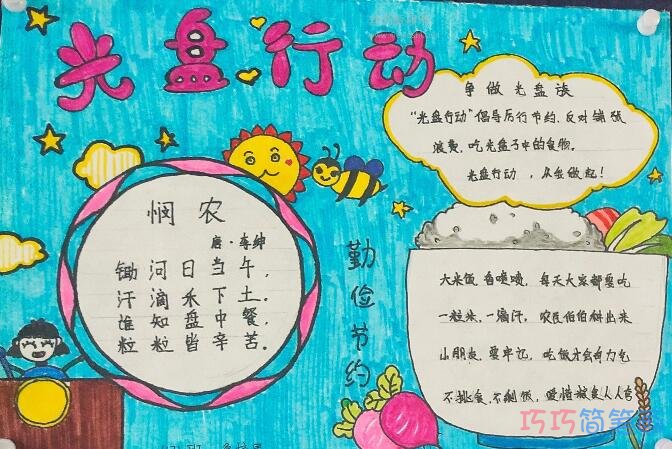 光盘行动
争做光盘族
"光盘行动"倡导厉行节约,反对铺张
浪费,吃光盘子中的食物。
光盘行动,从我做起!
悯农
唐·李绅
锄河日当午,
汗滴禾下土。
谁知盘中餐,
粒粒皆辛苦。
勤俭节约
大米饭香喷喷,每天大家都要吃
一粒米,一滴汗,农民伯伯耕出来
小朋友,要牢记,吃饭才会有力气
不挑食,不剩饭,爱惜粮食人人夸
巧巧简笔画